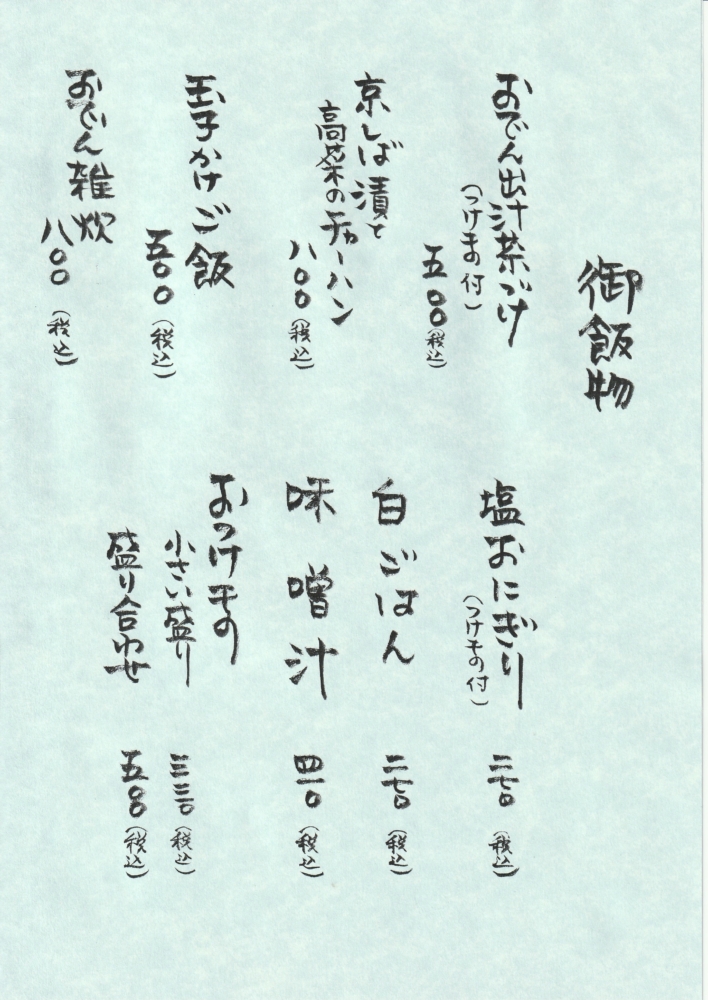 御飯物
おでん出汁茶づけ
(つけもの付)
五〇〇(税込)
京しば漬と
高菜のチャーハン
八〇〇(税込)
玉子かけご飯
五〇〇(税込)
おでん雑炊
八〇〇(税込)
塩おにぎり
(つけもの付)
二七〇(税込)
白ごはん
二七〇(税込)
味噌汁
四一〇(税込)
おつけもの
小さい盛り 三三〇(税込)
盛り合わせ 五〇〇(税込)